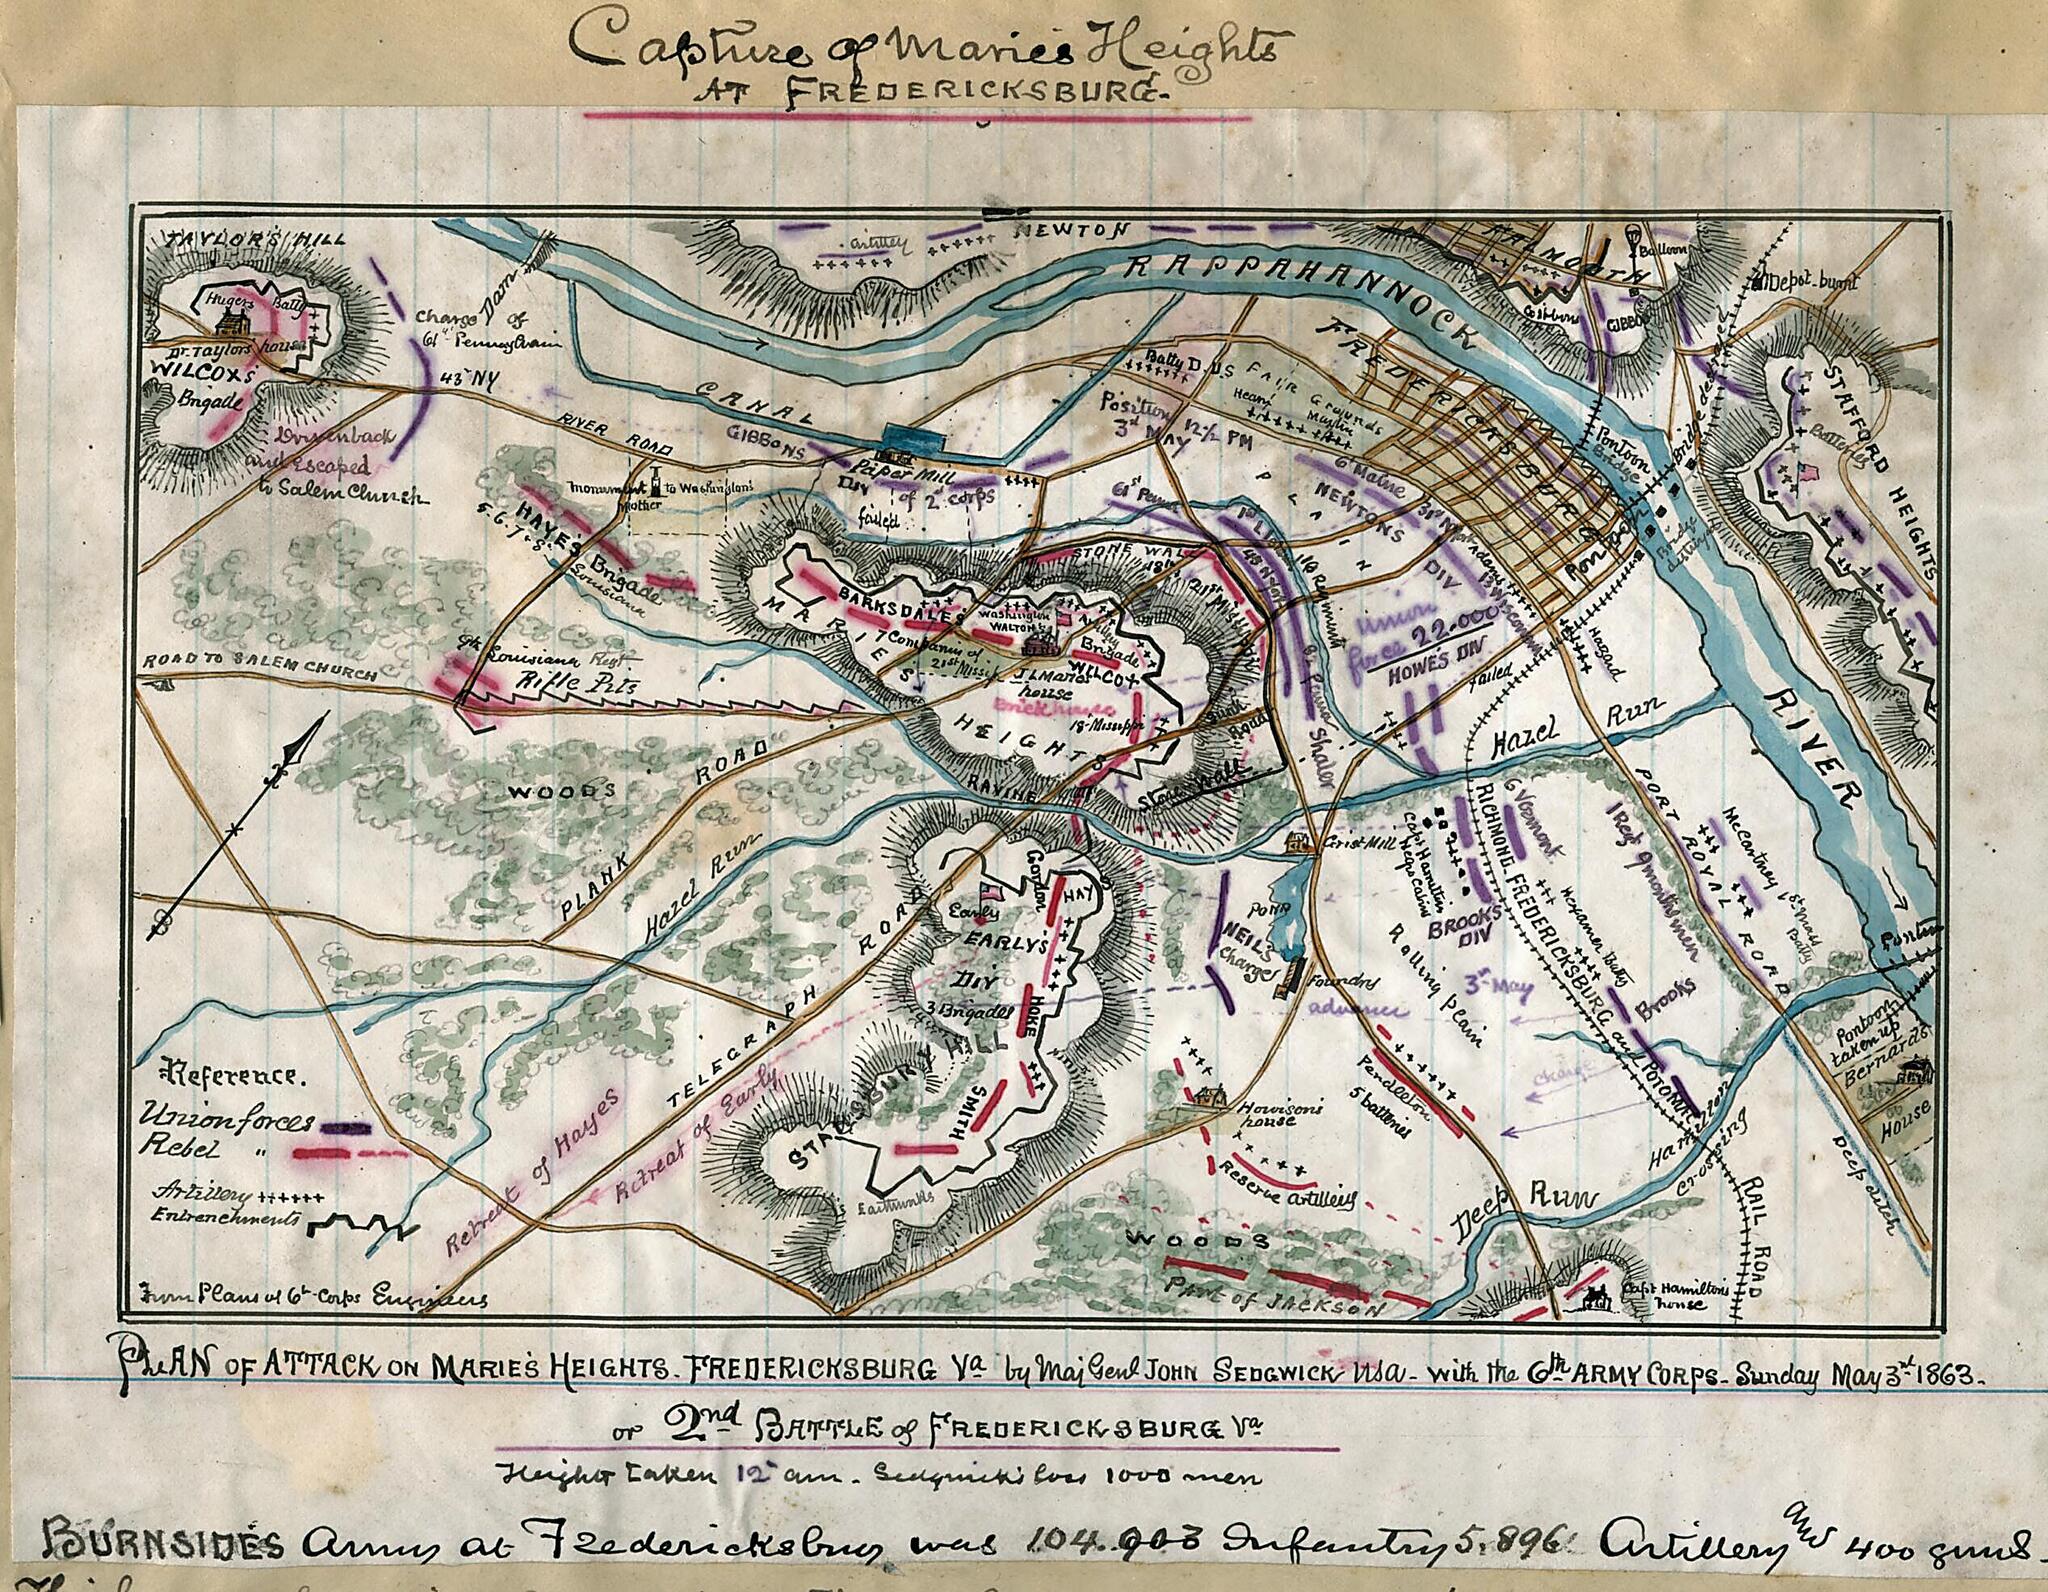 Capture of Marie's Heights
AT FREDERICKSBURG.
TAYLOR'S HILL
Hugers Batty
Dr. Taylors house
WILCOXS
Brigade
Driven back
and Escaped
to Salem Church
Charge of
61st Pennsylvain
43rd NY
Dam
artillery
NEWTON
RAPPAHANNOCK
RIVER
FALMOUTH
Balloon
GIBBON
Depot burnt
Bridge destroyed
STAFFORD HEIGHTS
Batteries
CANAL
RIVER ROAD
GIBBONS
Paper Mill
DIV
of 2d corps
failed
Monument to Washington's
Mother
Batty D. US
FAIR Grounds
Hearn
Position 12½ PM
3rd MAY
FREDERICKSBURG
Pontoon
Bridge
Pontoon
Bridge
destroyed
PLAIN
6th Maine
NEWTON'S
DIV
31st NY
Adams
5 Wisconsin
61st Penna
Union
force 22.000
HOWE'S DIV
failed
Hazard
82 Penna Shaler
HAYE'S Brigade
5.6.7 & 8th
Louisiana
9th Louisiana Regt
Rifle Pits
ROAD TO SALEM CHURCH
STONE WALL
18th
21st Missippi
MARIES
HEIGHTS
BARKSDALES
Brigade
Washington
WALTON
Artillery
Companies of
21st Missip
J L Maries
house
Brick house
WILCOX
18th Missippi
Sunk
Road
Stone Wall
RAVINE
WOODS
PLANK ROAD
Hazel Run
TELEGRAPH ROAD
Hazel Run
Grist Mill
POND
Foundry
NEILS
Charges
Gordon
HAY
Early
EARLY'S
DIV
3 Brigades
HOKE
STANSBURY HILL
SMITH
Earthworks
Capt Hamilton
Negro Cabins
BROOKS
DIV
6 Vermont
RICHMOND FREDERICKSBURG and POTOMAC
RAIL ROAD
Hexamer Batty
1 Regt 9 months men
PORT ROYAL ROAD
McCartney 1st Mass
Batty
Rolling Plain
3rd May
Brooks
advance
charge
Pendleton
5 batteries
Howison's
house
Reserve Artillery
Hamilton
Crossing
Deep Run
Pontoon
Pontoon
taken up
Bernards
House
Deep ditch
WOODS
PART OF JACKSON
Capt Hamilton's
house
Retreat of Hayes
Retreat of Early
Reference.
Union forces
Rebel "
Artillery ++++++
Entrenchments
From Plans of 6th Corps Engineers
PLAN OF ATTACK ON MARIE'S HEIGHTS. FREDERICKSBURG Va by Maj Genl JOHN SEDGWICK USA - with the 6th ARMY CORPS - Sunday May 3rd 1863.
or 2nd BATTLE of FREDERICKSBURG Va
Height taken 12 am. Sedgwick's loss 1000 men
BURNSIDES Army at Fredericksburg was 104.903 Infantry 5.896 Artillery and 400 guns.